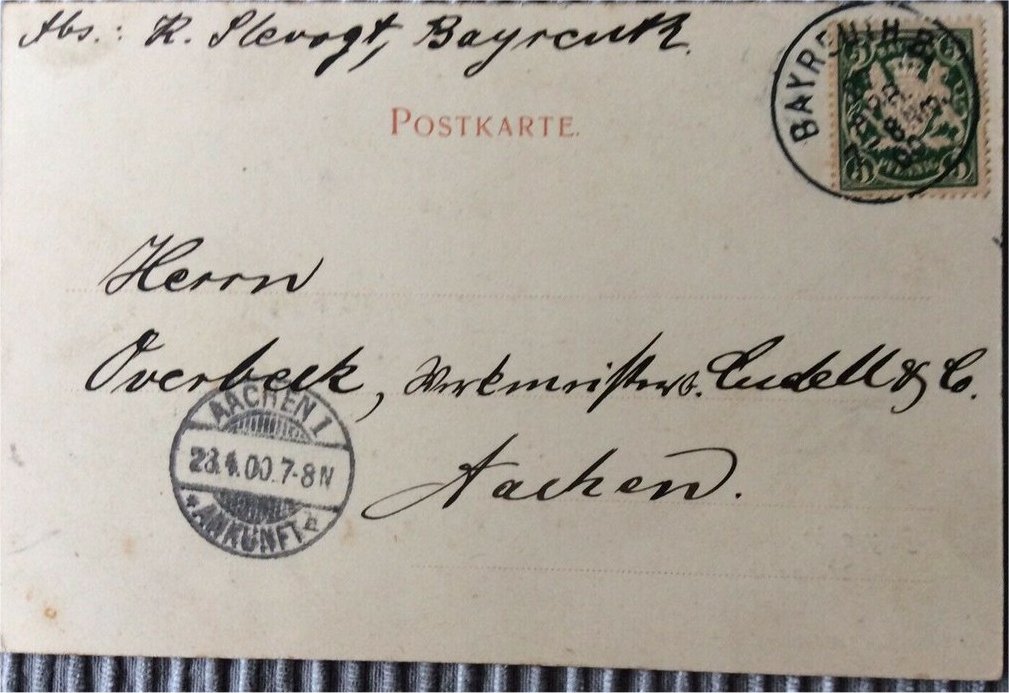 Abs.: R. Slevogt, Bayreuth.
BAYREUTH
POSTKARTE.
Herrn
Overbeck, Werkmeister b. Eudell & Co.
Aachen.
AACHEN 1
23.4.00.7-8N
* ANKUNFT